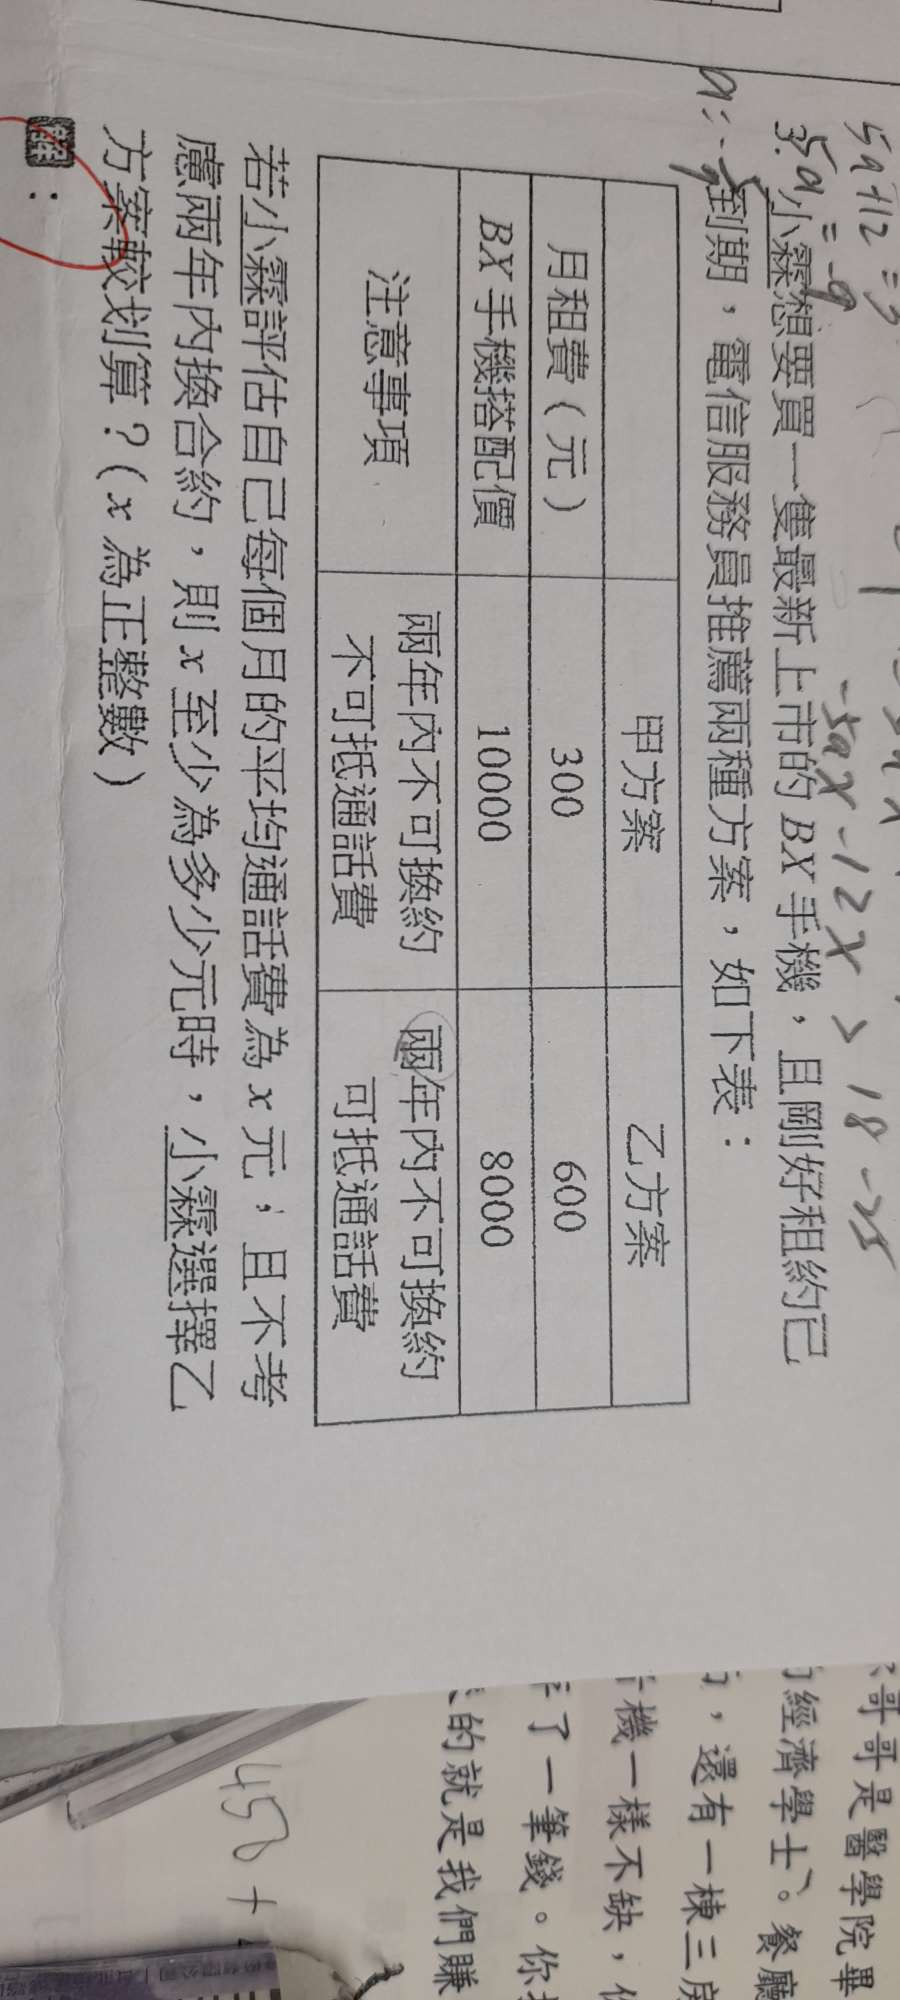 5a+12=3
5a=-9
-5ax-12x > 18-25
3. 小霖想要買一隻最新上市的BX手機，且剛好租約已
到期，電信服務員推薦兩種方案，如下表：
甲方案 乙方案
月租費（元） 300 600
BX手機搭配價 10000 8000
注意事項 兩年內不可換約 兩年內不可換約
不可抵通話費 可抵通話費
若小霖評估自己每個月的平均通話費為x元，且不考
慮兩年內換合約，則x至少為多少元時，小霖選擇乙
方案較划算？（x為正整數）
解：
哥哥是醫學院畢
經濟學士。餐廳
，還有一棟三房
機一樣不缺，
了一筆錢。你
的就是我們賺
450+